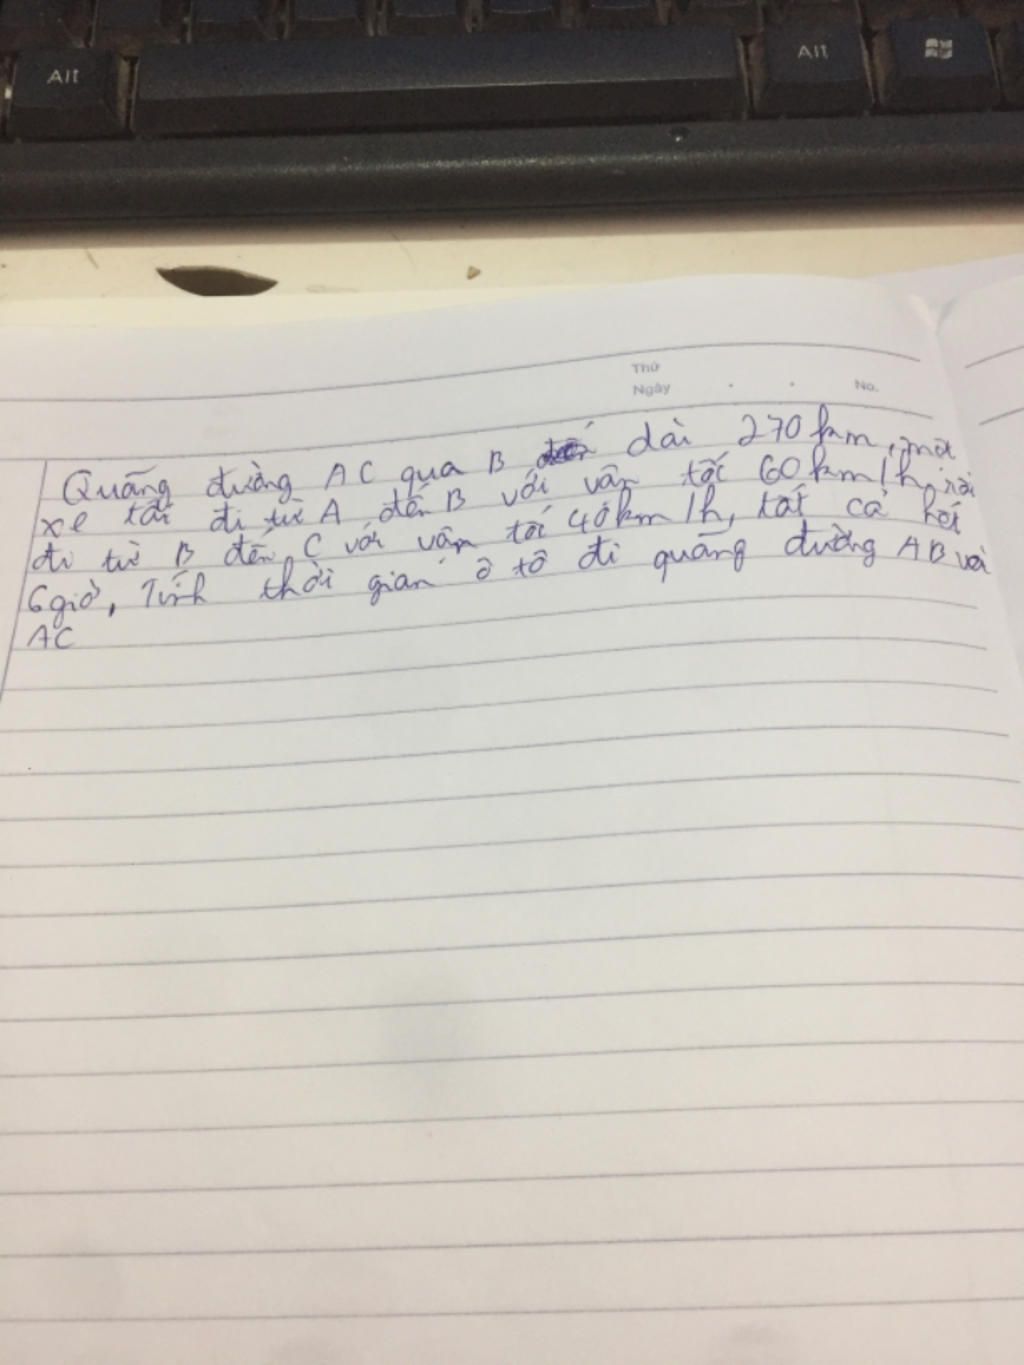 Alt
Alt
Thứ
Ngày . . No.
Quãng đường AC qua B dài 270 km, một
xe tải đi từ A đến B với vận tốc 60 km/h, rồi
đi từ B đến C với vận tốc 40 km/h, tất cả hết
6 giờ, Tính thời gian ô tô đi quãng đường AB và
AC